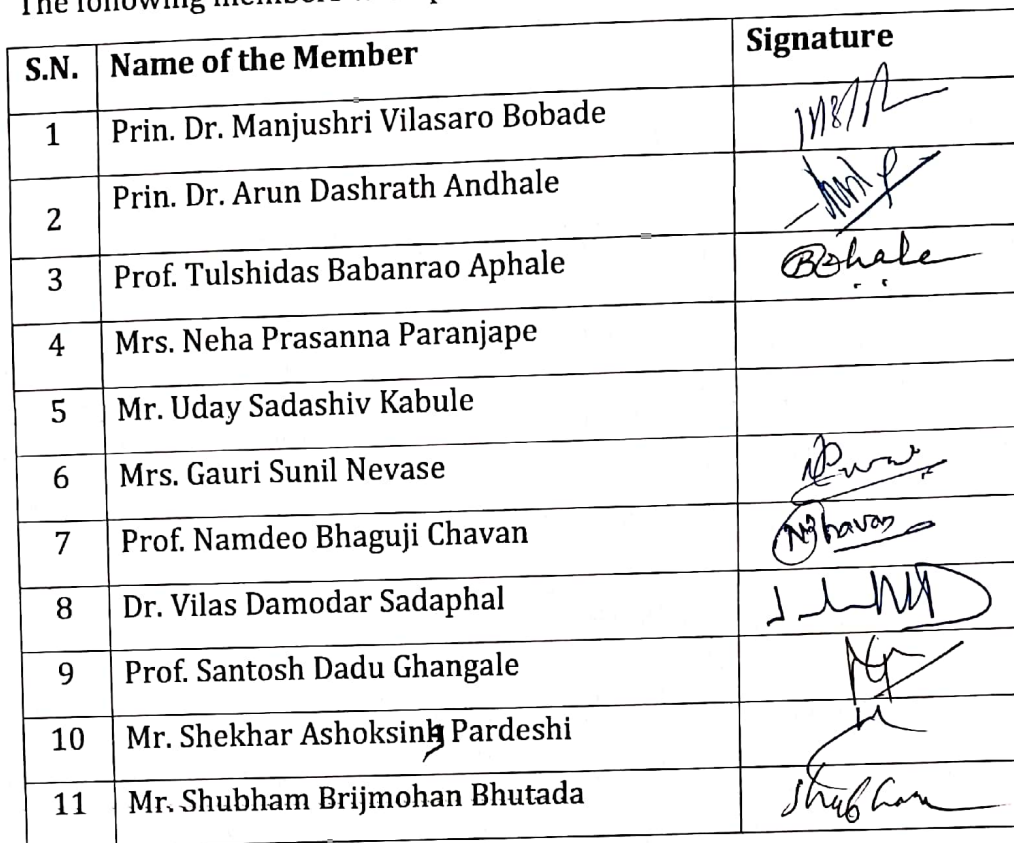 The following members
S.N. Name of the Member Signature
1 Prin. Dr. Manjushri Vilasaro Bobade
2 Prin. Dr. Arun Dashrath Andhale
3 Prof. Tulshidas Babanrao Aphale
4 Mrs. Neha Prasanna Paranjape
5 Mr. Uday Sadashiv Kabule
6 Mrs. Gauri Sunil Nevase
7 Prof. Namdeo Bhaguji Chavan
8 Dr. Vilas Damodar Sadaphal
9 Prof. Santosh Dadu Ghangale
10 Mr. Shekhar Ashoksing Pardeshi
11 Mr. Shubham Brijmohan Bhutada Shubham